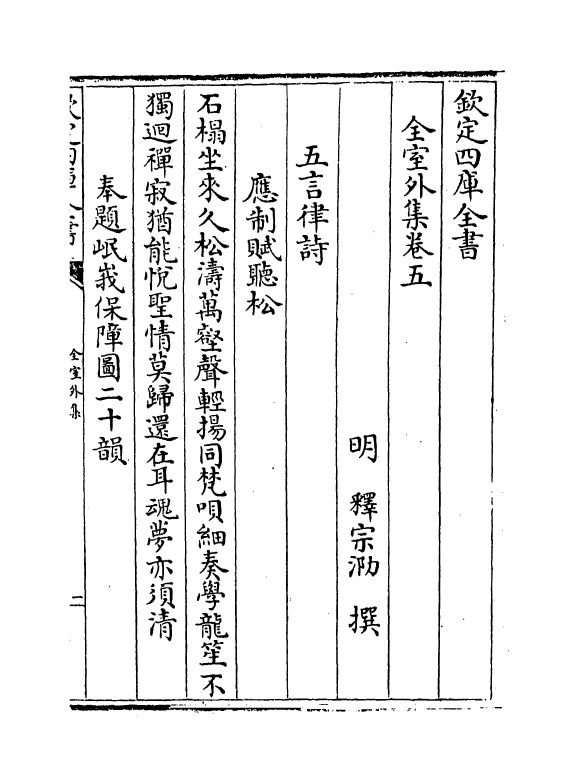 欽定四庫全書
全室外集卷五
明 釋宗泐 撰
五言律詩
應制賦聽松
石榻坐來久松濤萬壑聲輕揚同梵唄細奏學龍笙不
獨迴禪寂猶能悅聖情莫歸還在耳魂夢亦須清
奉題岷峩保障圖二十韻
欽定四庫全書
全室外集
二